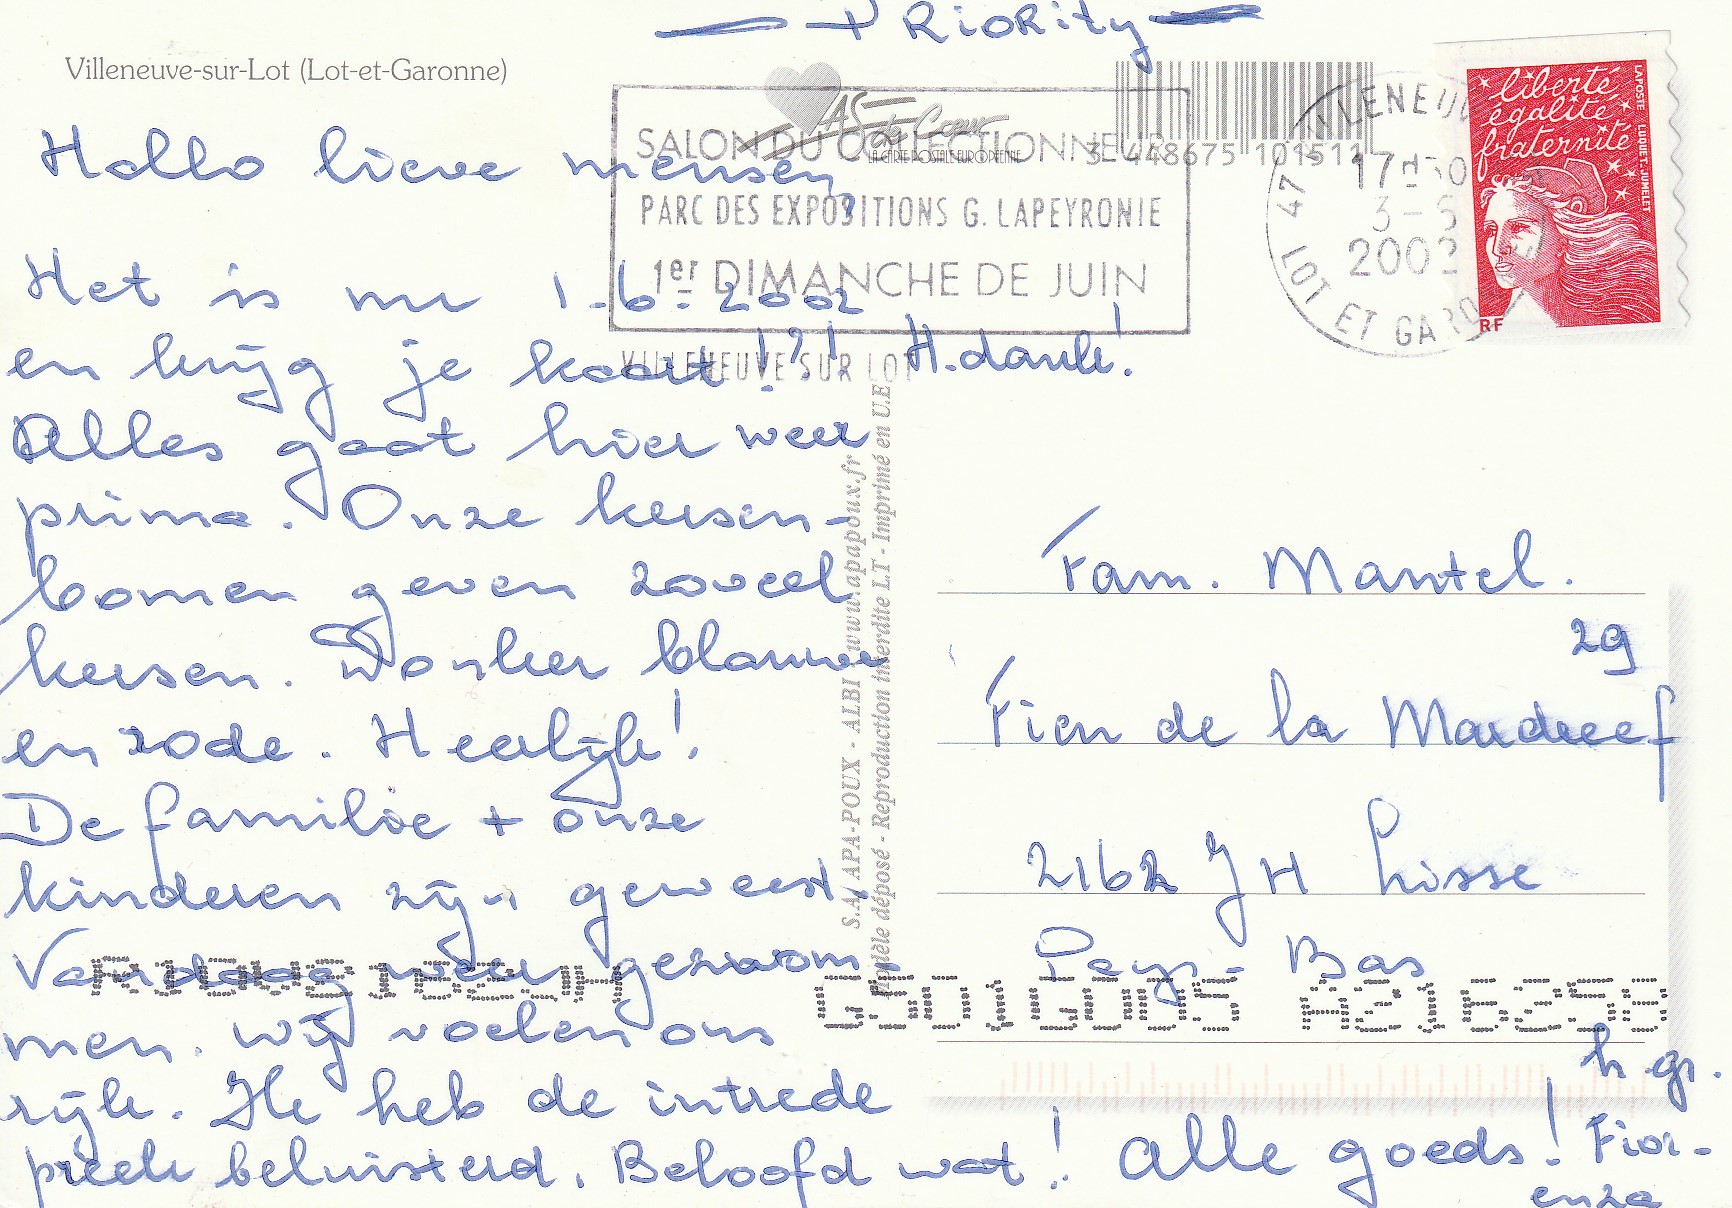 — PRiORity —
Villeneuve-sur-Lot (Lot-et-Garonne)
AS de Cœur
LA CARTE POSTALE EUROPÉENNE
3 448675 101511
SALON DU COLLECTIONNEUR
PARC DES EXPOSITIONS G. LAPEYRONIE
1er DIMANCHE DE JUIN
VILLENEUVE SUR LOT
47 VILLENEUVE
17H30
3-6
2002
LOT ET GARO
liberté
égalité
fraternité
LAPOSTE LUQUET. JUMELET
RF
Hallo lieve mensen,
Het is nu 1-6-2002
en krijg je kaart!?! H.dank!
Alles gaat hier weer
prima. Onze kersen-
bomen geven zoveel
kersen. Donker blauwe
en rode. Heerlijk!
De familie + onze
kinderen zijn geweest.
Vandaag weer gezwom-
men. Wij voelen ons
rijk. Ik heb de intrede
preek beluisterd. Beloofd wat! Alle goeds!
h gr.
Fior-
enza
S.A. APA-POUX - ALBI www.apapoux.fr
Modèle déposé - Reproduction interdite LT - Imprimé en U.E
Fam. Mantel.
29
Fien de la Mardreef
2162 JH Lisse
Pays-Bas
G501G005 A216258